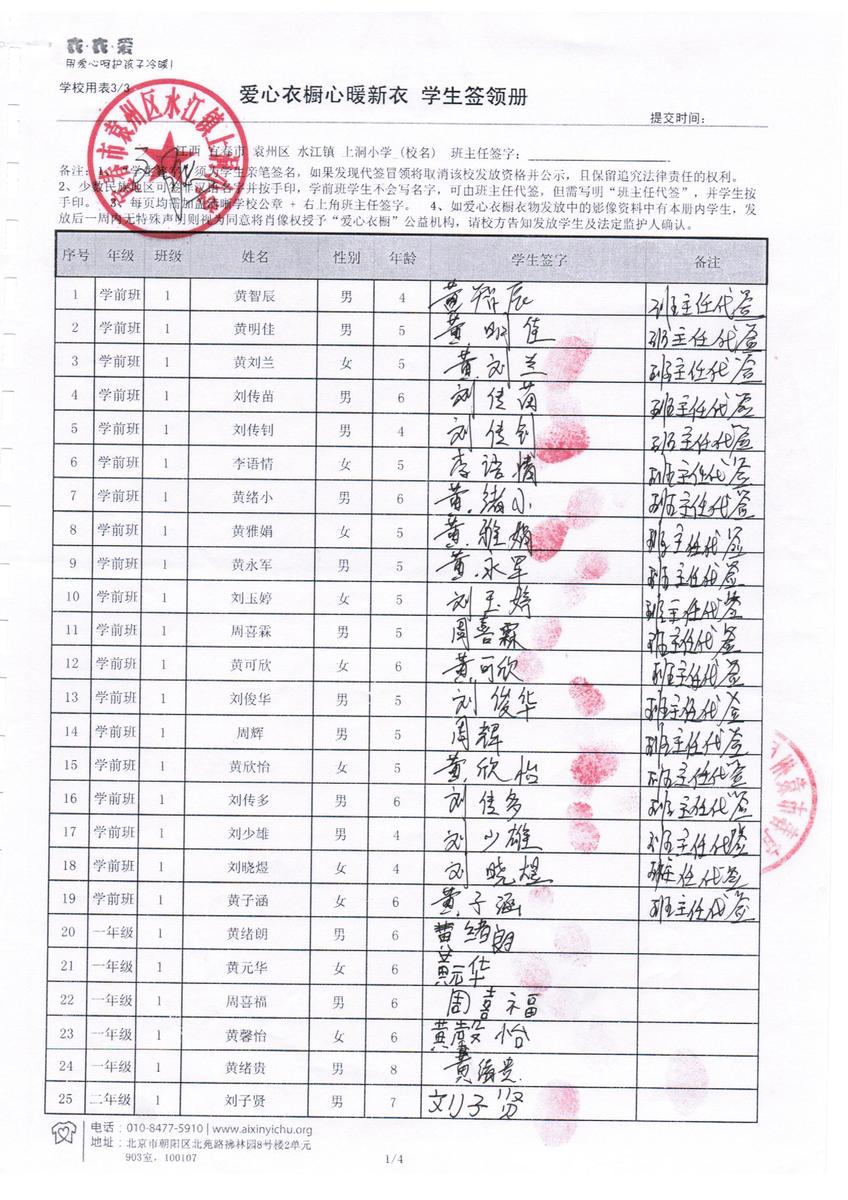 衣·衣·爱
用爱心呵护孩子冷暖!
学校用表3/3
爱心衣橱心暖新衣 学生签领册
提交时间:
江西 宜春市 袁州区 水江镇 上洞小学 (校名) 班主任签字:
备注: 1、学生签字必须为学生亲笔签名,如果发现代签冒领将取消该校发放资格并公示,且保留追究法律责任的权利。
2、少数民族地区可签非汉语名字并按手印,学前班学生不会写名字,可由班主任代签,但需写明“班主任代签”,并学生按
手印。 3、每页均需加盖清晰学校公章 + 右上角班主任签字。 4、如爱心衣橱衣物发放中的影像资料中有本册内学生,发
放后一周内无特殊声明则视为同意将肖像权授予“爱心衣橱”公益机构,请校方告知发放学生及法定监护人确认。
序号 年级 班级 姓名 性别 年龄 学生签字 备注
1 学前班 1 黄智辰 男 4 黄智辰 班主任代签
2 学前班 1 黄明佳 男 5 黄明佳 班主任代签
3 学前班 1 黄刘兰 女 5 黄刘兰 班主任代签
4 学前班 1 刘传苗 男 6 刘传苗 班主任代签
5 学前班 1 刘传钊 男 4 刘传钊 班主任代签
6 学前班 1 李语情 女 5 李语情 班主任代签
7 学前班 1 黄绪小 男 6 黄绪小 班主任代签
8 学前班 1 黄雅娟 女 5 黄雅娟 班主任代签
9 学前班 1 黄永军 男 5 黄永军 班主任代签
10 学前班 1 刘玉婷 女 5 刘玉婷 班主任代签
11 学前班 1 周喜霖 男 5 周喜霖 班主任代签
12 学前班 1 黄可欣 女 6 黄可欣 班主任代签
13 学前班 1 刘俊华 男 5 刘俊华 班主任代签
14 学前班 1 周辉 男 5 周辉 班主任代签
15 学前班 1 黄欣怡 女 5 黄欣怡 班主任代签
16 学前班 1 刘传多 男 6 刘传多 班主任代签
17 学前班 1 刘少雄 男 4 刘少雄 班主任代签
18 学前班 1 刘晓煜 女 4 刘晓煜 班主任代签
19 学前班 1 黄子涵 女 6 黄子涵 班主任代签
20 一年级 1 黄绪朗 男 6 黄绪朗
21 一年级 1 黄元华 女 6 黄元华
22 一年级 1 周喜福 男 6 周喜福
23 一年级 1 黄馨怡 女 6 黄馨怡
24 一年级 1 黄绪贵 男 8 黄绪贵
25 二年级 1 刘子贤 男 7 刘子贤
电话:010-8477-5910 | www.aixinyichu.org
地址:北京市朝阳区北苑路拂林园8号楼2单元
903室,100107
1/4